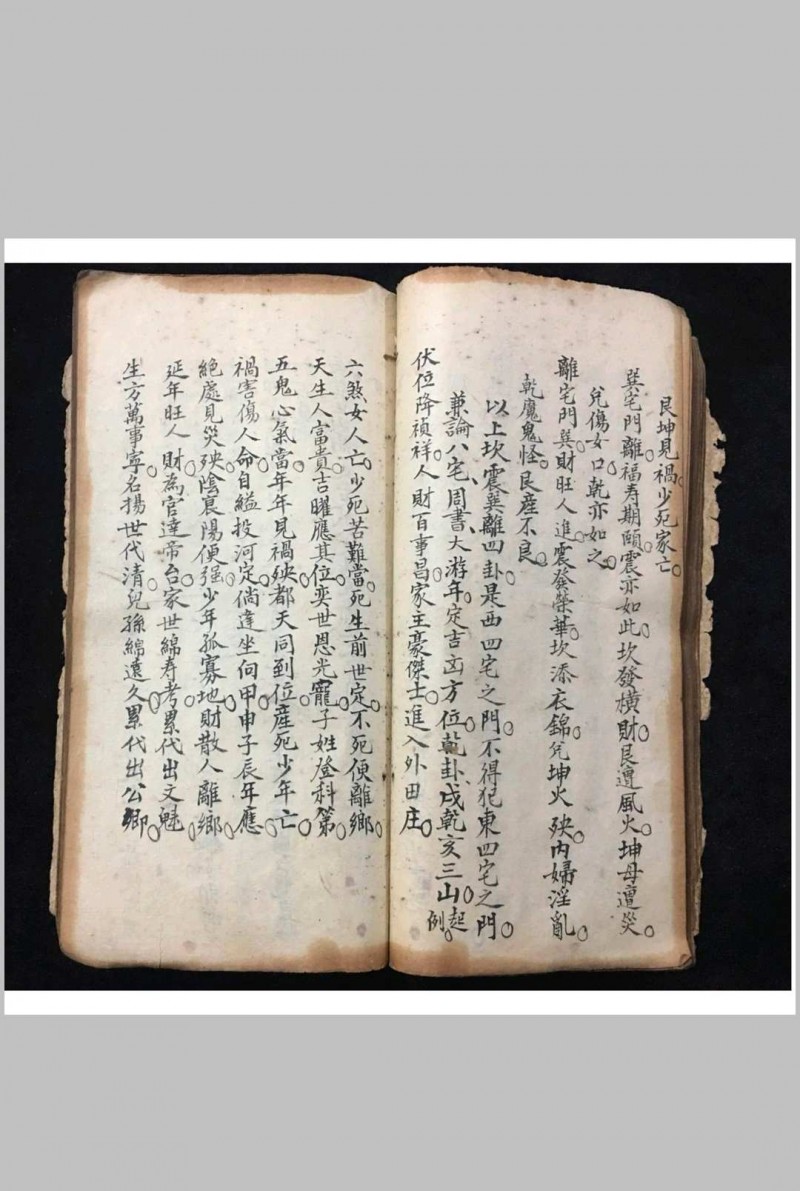 艮坤見禍少死家亡
巽宅門離福寿期頤震亦如此坎發橫財艮遭風火坤母遭災
兌傷女口乾亦如之
離宅門巽財旺人進震發榮華坎添衣錦兌坤火殃內婦淫亂
乾魔鬼怪艮産不良
以上坎震巽離四卦是西四宅之門不得犯東四宅之門
兼論八宅周書大游年定吉凶方位乾卦戌乾亥三山起例
伏位降禎祥人財百事昌家主豪傑士進入外田庄
六煞女人亡少死苦難當死生前世定不死便離鄉
天生人富貴吉曜應其位奕世恩光寵子姓登科第
五鬼心氣當年年見禍殃都天同到位産死少年亡
禍害傷人命自縊投河定倘違坐向甲申子辰年應
絕處見災殃陰衰陽便强少年孤寡地財散人離鄉
延年旺人財為官達帝台家世綿寿考累代出文魁
生方萬事寧名揚世代清兒孫綿遠久累代出公卿